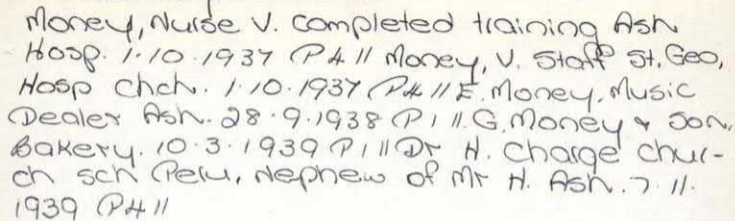 Money, Nurse V. completed training Ash
Hosp. 1.10.1937 P4 || Money, V. Staff St. Geo,
Hosp Chch. 1.10.1937 P4 || E. Money. Music
Dealer Ash. 28.9.1938 P1 ||. G. Money & Son,
Bakery. 10.3.1939 P1 || Dr H. Charge chur-
ch sch Peru, Nephew of Mr H. Ash. 7.11.
1939 P4 ||